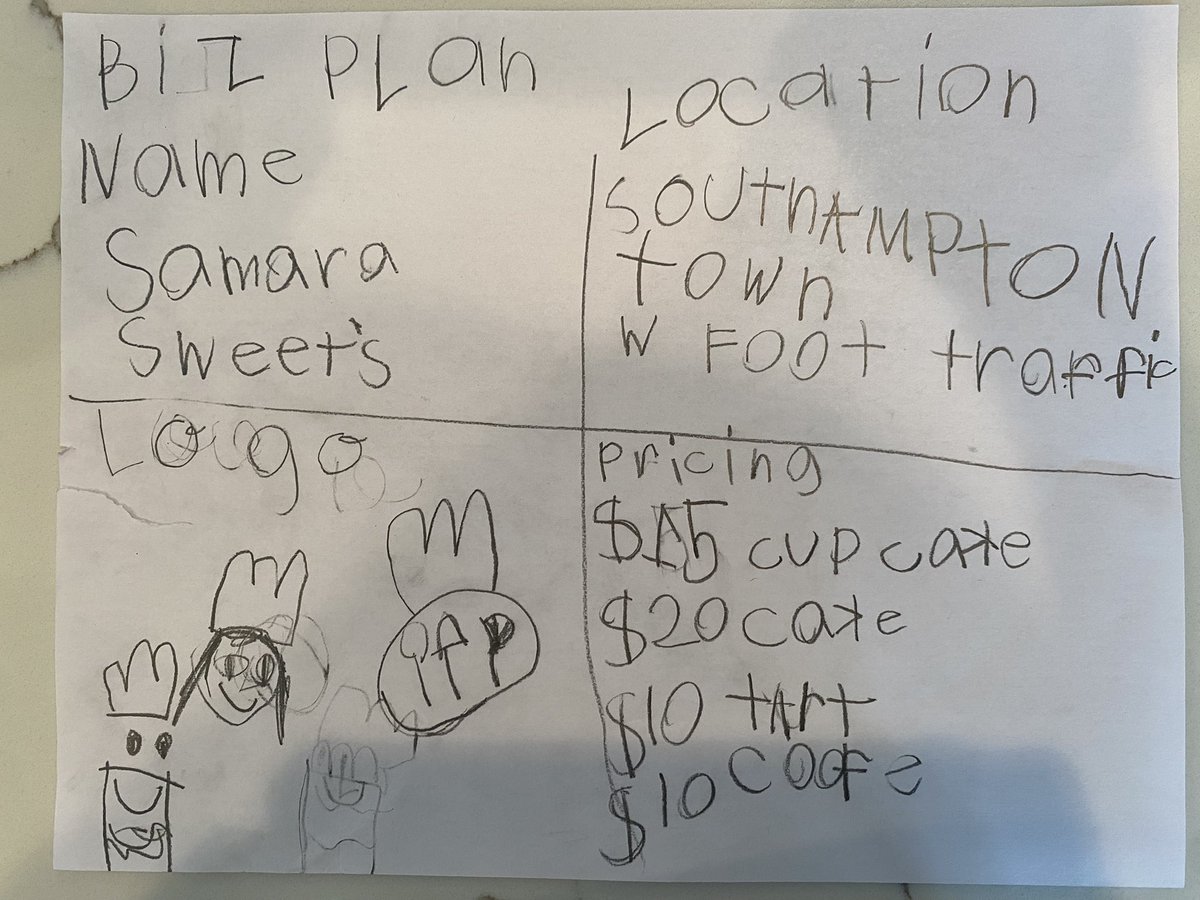 BiZ PLan
Name
Samara
Sweet's
Location
SOUthAMPtON
town
W FOOt traffic
Logo
pricing
$15 cupcake
$20 cake
$10 tArt
$10 cooFe